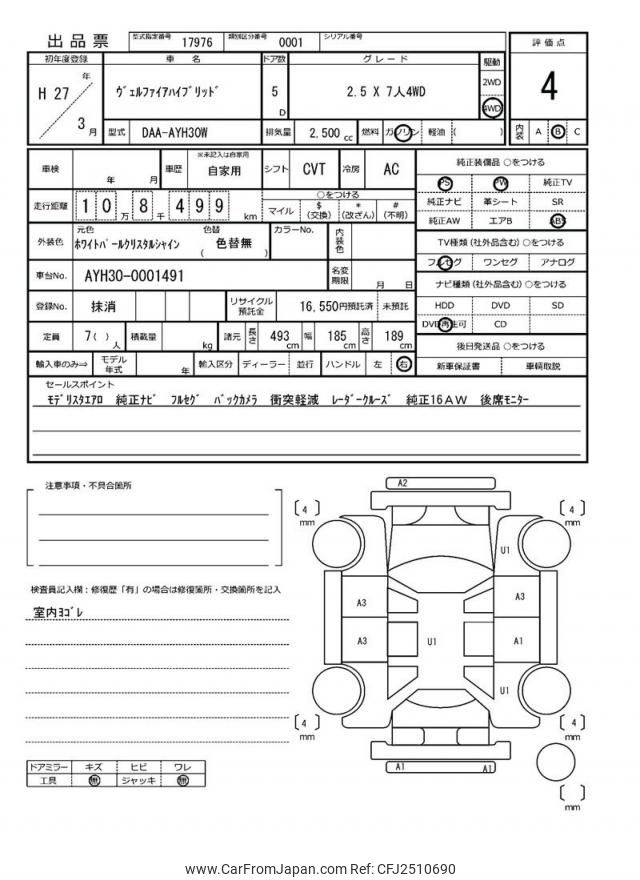 出品票 型式指定番号 17976 類別区分番号 0001 シリアル番号
評価点
4
内装 A B C
初年度登録 車名 ドア数 グレード 駆動
H 27 年 3 月 ヴェルファイアハイブリッド 5 D 2.5 X 7人4WD 2WD 4WD
型式 DAA-AYH30W 排気量 2,500 cc 燃料 ガソリン 軽油 ( )
車検 年 月 車歴 ※未記入は自家用 自家用 シフト CVT 冷房 AC
走行距離 10万8千499 km ○をつける マイル $(交換) *(改ざん) #(不明)
外装色 元色 ホワイトパールクリスタルシャイン 色替 ( 色替無 ) カラーNo. 内装色
車台No. AYH30-0001491 名変期限 月 日
登録No. 抹消 リサイクル預託金 16,550円預託済 未預託
定員 7( )人 積載量 kg 諸元 長さ 493cm 幅 185cm 高さ 189cm
輸入車のみ⇒ モデル年式 年 輸入区分 ディーラー 並行 ハンドル 左 右
純正装備品 ○をつける
PS PW 純正TV
純正ナビ 革シート SR
純正AW エアB ABS
TV種類 (社外品含む) ○をつける
フルセグ ワンセグ アナログ
ナビ種類 (社外品含む) ○をつける
HDD DVD SD
DVD再生可 CD
後日発送品 ○をつける
新車保証書 車輌取説
セールスポイント
モデリスタエアロ 純正ナビ フルセグ バックカメラ 衝突軽減 レーダークルーズ 純正16AW 後席モニター
注意事項・不具合箇所
検査員記入欄：修復歴「有」の場合は修復箇所・交換箇所を記入
室内ヨゴレ
ドアミラー キズ ヒビ ワレ
工具 無 ジャッキ 無
A2
4 mm
4 mm
U1
A3
A3
A3
U1
A1
U1
4 mm
4 mm
A1
A1
mm
www.CarFromJapan.com Ref: CFJ2510690